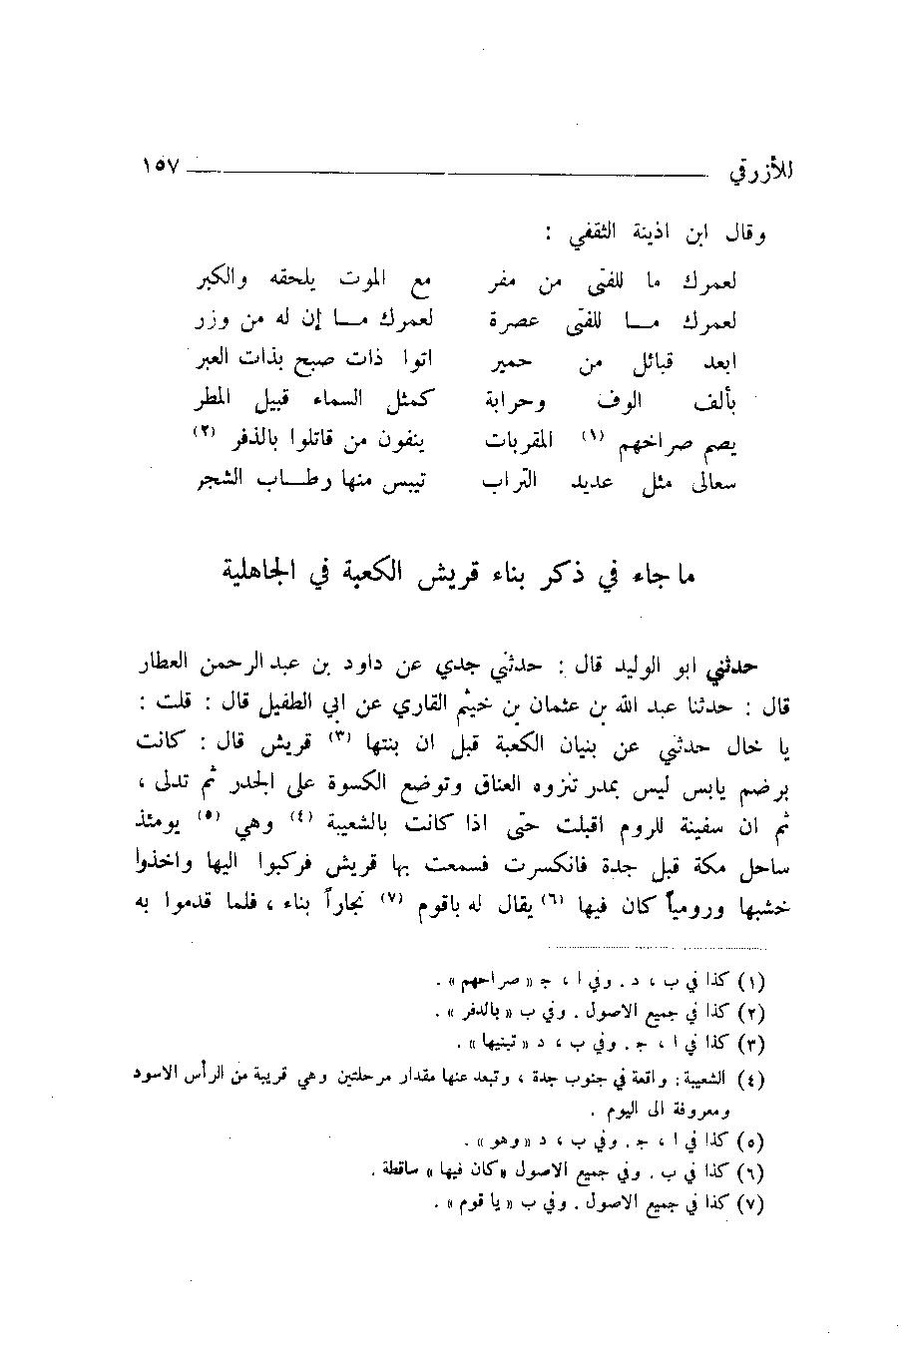 للأزرقي ١٥٧
وقال ابن اذينة الثقفي :
لعمرك ما للفتى من مفر مع الموت يلحقه والكبر
لعمرك مـا للفتى عصرة لعمرك مـا إن له من وزر
ابعد قبائل من حمير اتوا ذات صبح بذات العبر
بألف الوف وحرابة كمثل السماء قبيل المطر
يصم صراخهم (١) المقربات ينفون من قاتلوا بالذفر (٢)
سعالى مثل عديد التراب تيبس منها رطـاب الشجر
ما جاء في ذكر بناء قريش الكعبة في الجاهلية
حدثني ابو الوليد قال : حدثني جدي عن داود بن عبد الرحمن العطار
قال : حدثنا عبد الله بن عثمان بن خيثم القاري عن ابي الطفيل قال : قلت :
يا خال حدثني عن بنيان الكعبة قبل ان بنتها (٣) قريش قال : كانت
برضم يابس ليس بمدر تنزوه العناق وتوضع الكسوة على الجدر ثم تدلى ،
ثم ان سفينة للروم اقبلت حتى اذا كانت بالشعيبة (٤) وهي (٥) يومئذ
ساحل مكة قبل جدة فانكسرت فسمعت بها قريش فركبوا اليها واخذوا
خشبها ورومياً كان فيها (٦) يقال له باقوم (٧) نجاراً بناء ، فلما قدموا به
(١) كذا في ب ، د . وفي ا ، ج « صراحهم » .
(٢) كذا في جميع الاصول . وفي ب « بالدفر » .
(٣) كذا في ا ، ج . وفي ب ، د « تبنيها » .
(٤) الشعيبة : واقعة في جنوب جدة ، وتبعد عنها مقدار مرحلتين وهي قريبة من الرأس الاسود
ومعروفة الى اليوم .
(٥) كذا في ا ، ج . وفي ب ، د « وهو » .
(٦) كذا في ب . وفي جميع الاصول « كان فيها » ساقطة .
(٧) كذا في جميع الاصول . وفي ب « يا قوم » .